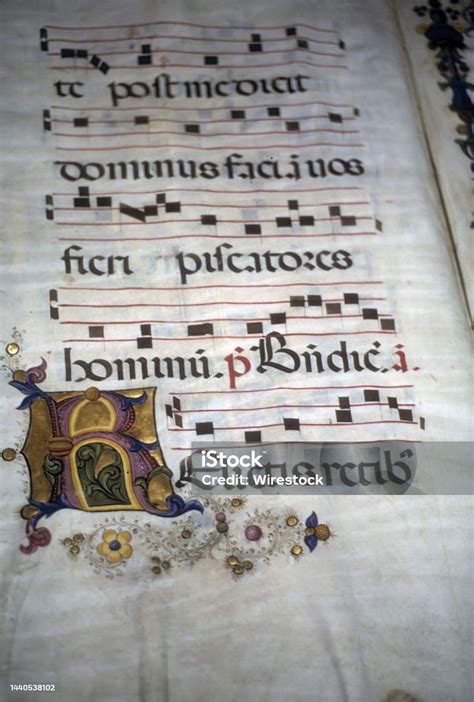 te post me dicit
dominus faciā uos
fieri piscatores
hominū. p̄ Bn̄dic̄. ā.
R elictis retibꝰ
iStock
Credit: Wirestock
1440538102